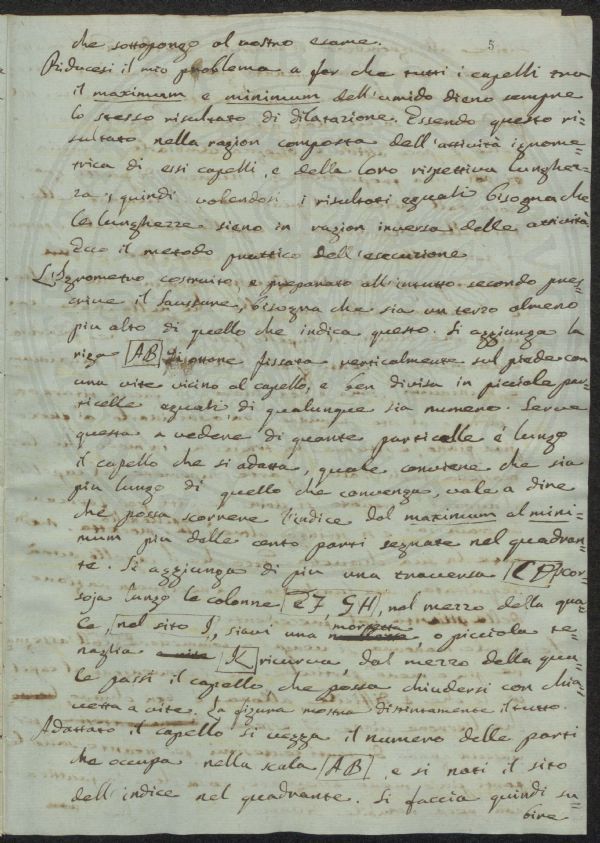 5
che sottopongo al vostro esame.
Riducesi il mio problema a far che tutti i capelli tra
il maximum e minimum dell'umido dieno sempre
lo stesso risultato di dilatazione. Essendo questo ri=
sultato nella ragion composta dell'attività igrome=
trica di essi capelli, e della loro rispettiva lunghez=
za, quindi volendosi i risultati eguali bisogna che
le lunghezze sieno in ragion inversa delle attività
Ecco il metodo prattico dell'esecuzione
L'Igrometro costruito e preparato all'intutto secondo pres=
crive il Saussure, bisogna che sia un terzo almeno
piu alto di quello che indica questo. Si aggiunga la
riga [AB] di ottone fissata verticalmente sul piede con
una vite vicino al capello, e ben divisa in picciole par=
ticelle eguali di qualunque sia numero. Serve
questa a vedere di quante particelle è lungo
il capello che si adatta, quale conviene che sia
piu lungo di quello che convenga, vale a dire
che possa scorrere l'indice dal maximum al mini=
mum piu delle cento parti segnate nel quadran=
te. Si aggiunga di piu una traversa [CD] scor=
soja lungo le colonne [EF, GH], nel mezzo della qua=
le, [nel sito I], siavi una morsetta, o picciola te=
naglia [K] ricurva, dal mezzo della qua=
le passi il capello, che possa chiudersi con chia=
vetta a vite. La figura mostra distintamente il tutto.
Adattato il capello si vegga il numero delle parti
che occupa nella scala [AB], e si noti il sito
dell'indice nel quadrante. Si faccia quindi su=
bire